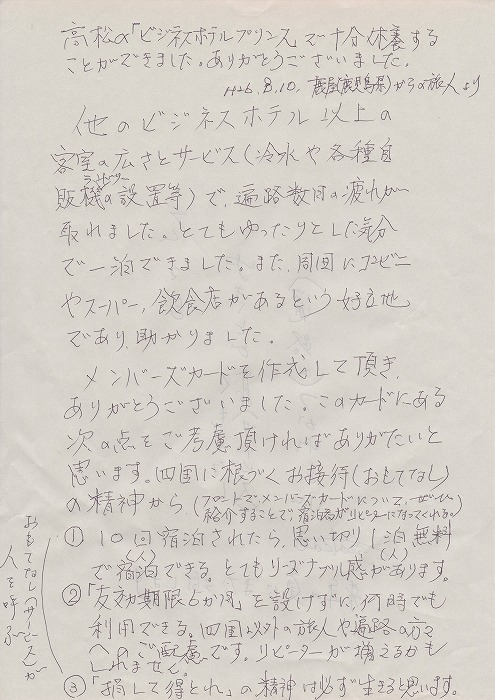 高松の「ビジネスホテルプリンス」で十分休養する
ことができました。ありがとうございました。
H26.8.10. 鹿屋(鹿児島県)からの旅人より
他のビジネスホテル以上の
客室の広さとサービス(冷水や各種自
販機の設置等)で、遍路数日の疲れが
取れました。とてもゆったりとした気分
で一泊できました。また、周囲にコンビニ
やスーパー、飲食店があるという好立地
であり、助かりました。
メンバーズカードを作成して頂き、
ありがとうございました。このカードにある
次の点をご考慮頂ければありがたいと
思います。四国に根づくお接待(おもてなし)
の精神から、(フロントでメンバーズカードについて、ぜひ
紹介することで、宿泊者がリピーターになってくれる。)
① 10回宿泊されたら、思い切り1泊無料
で宿泊(人)できる。とてもリーズナブル感(人)があります。
② 「有効期限6か月」を設けずに、何時でも
利用できる。四国以外の旅人や遍路の方々
へのご配慮です。リピーターが増えるかも
しれません。
③ 「損して得とれ」の精神は必ず生きると思います。
おもてなし(サービス)が
人を呼ぶ